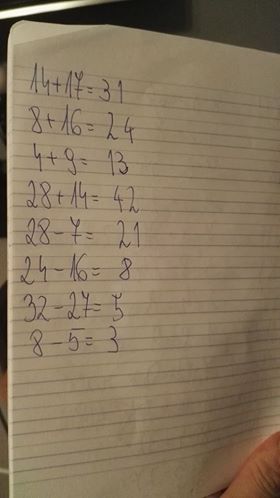 14+17=31
8+16=24
4+9=13
28+14=42
28-7=21
24-16=8
32-27=5
8-5=3